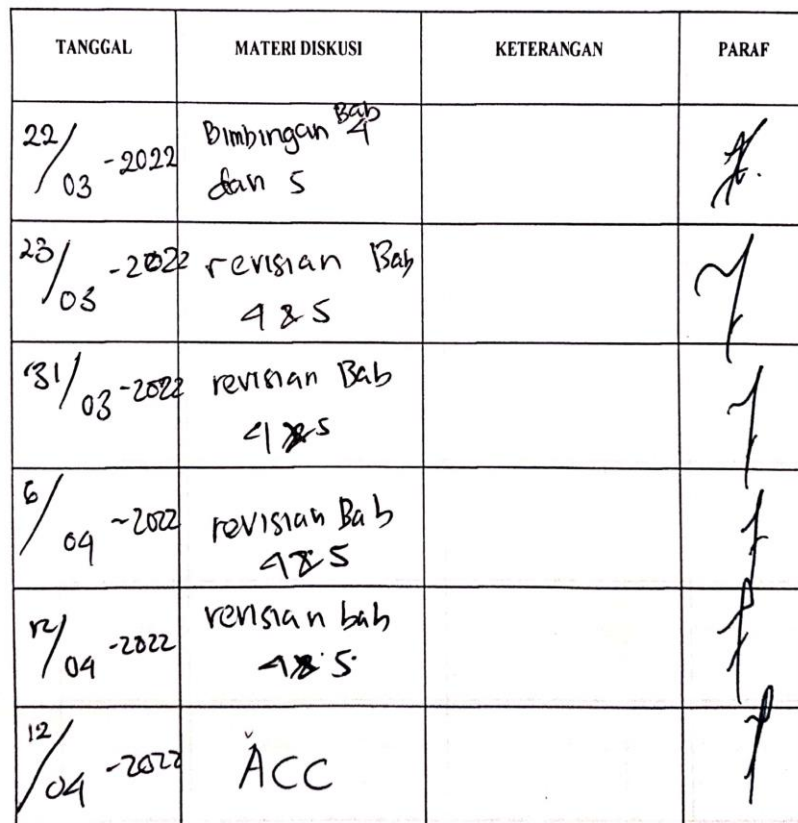 TANGGAL MATERI DISKUSI KETERANGAN PARAF
22/03-2022 Bimbingan Bab 4
dan 5
23/03-2022 revisian Bab
4 & 5
31/03-2022 revisian Bab
4 & 5
6/04-2022 revisian Bab
4 & 5
/04-2022 revisian bab
4 & 5
12/04-2022 ACC